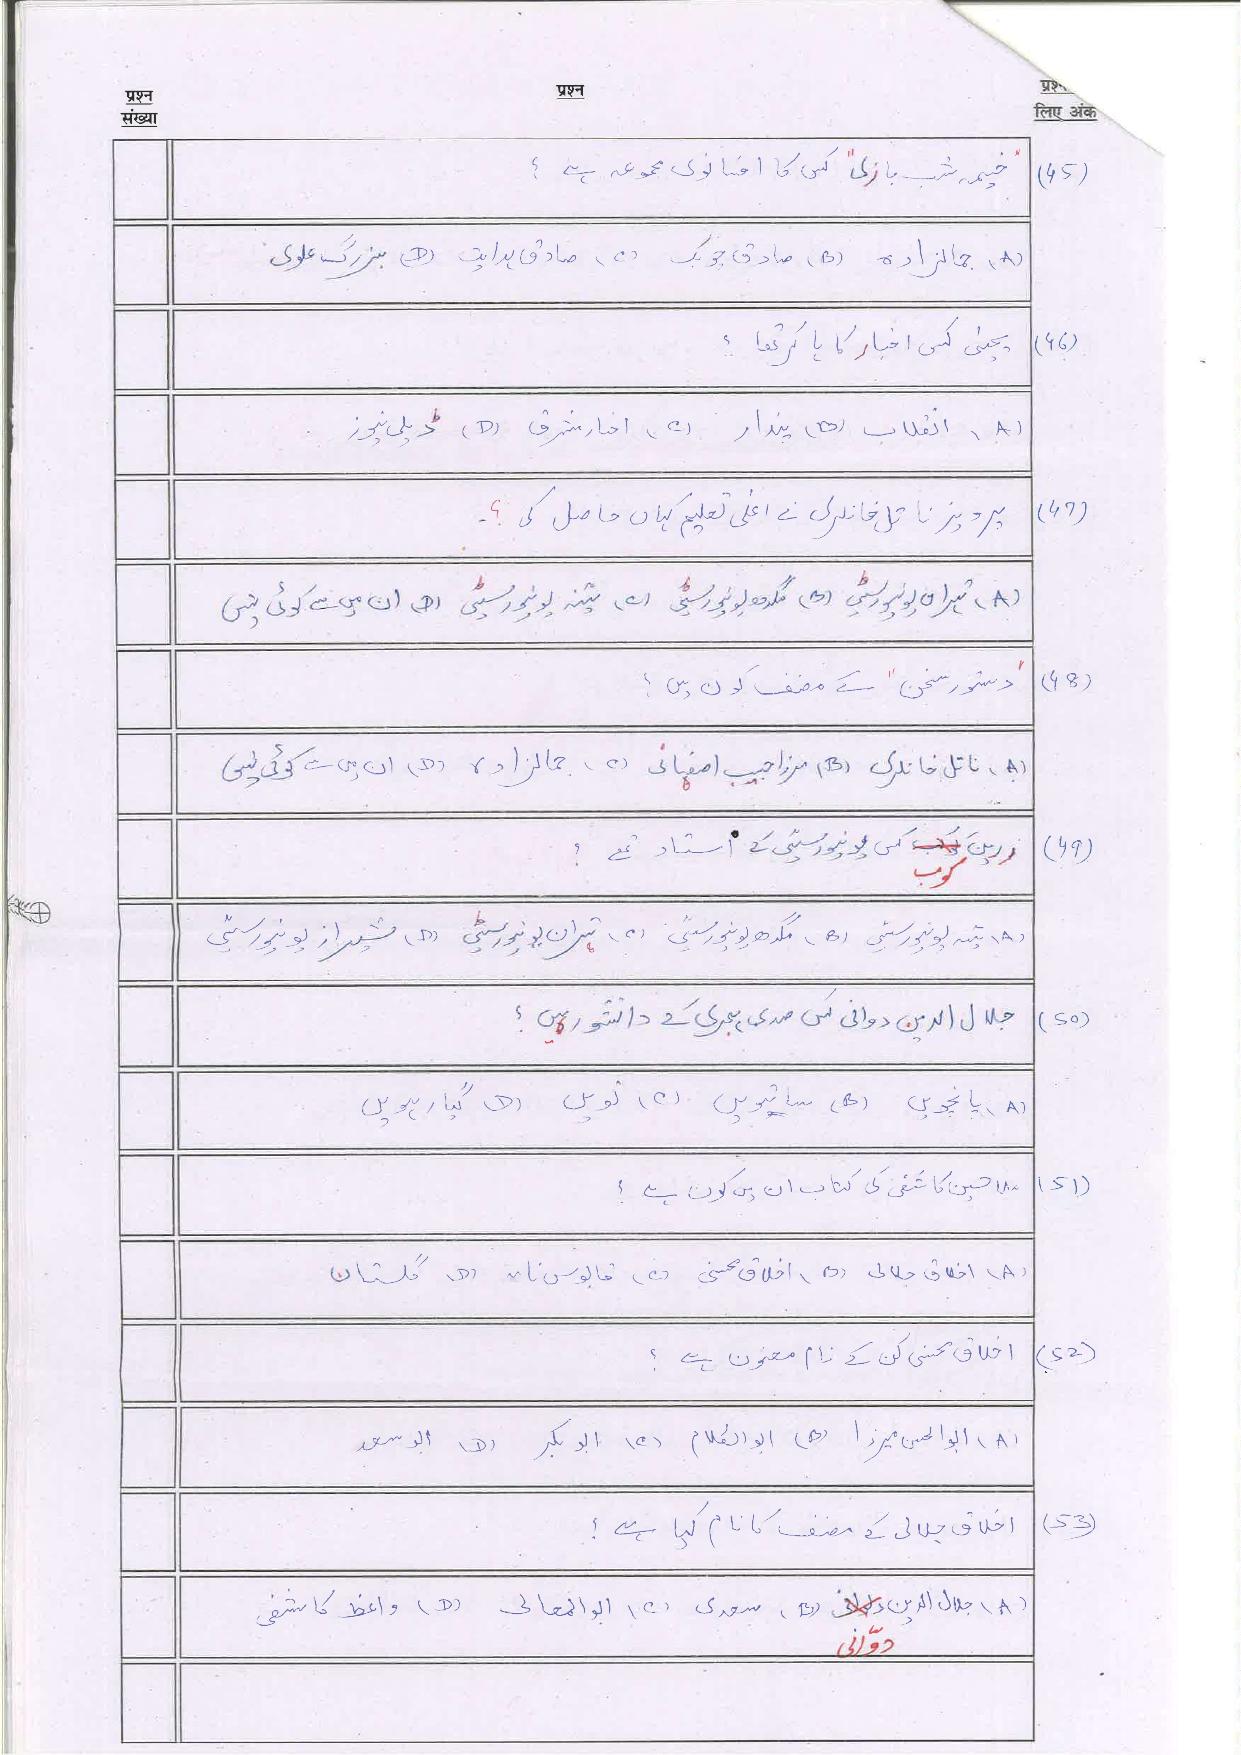 प्रश्न संख्या
प्रश्न
लिए अंक
(45) "خیمہ شب بازی" کس کا افسانوی مجموعہ ہے ؟
(A) جمالزادہ (B) صادق چوبک (C) صادق ہدایت (D) بزرگ علوی
(46) یحیٰی کس اخبار کا ہاکر تھا ؟
(A) انقلاب (B) پندار (C) اخبار مشرق (D) ڈیلی نیوز
(47) پرویز ناتل خانلری نے اعلٰی تعلیم کہاں حاصل کی ؟
(A) تہران یونیورسٹی (B) مگدھ یونیورسٹی (C) پٹنہ یونیورسٹی (D) ان میں سے کوئی نہیں
(48) "دستور سخن" کے مصنف کون ہیں ؟
(A) ناتل خانلری (B) مرزا حبیب اصفہانی (C) جمالزادہ (D) ان میں سے کوئی نہیں
(49) زرین کوب کس یونیورسٹی کے استاد تھے ؟
(A) پٹنہ یونیورسٹی (B) مگدھ یونیورسٹی (C) تہران یونیورسٹی (D) شیراز یونیورسٹی
(50) جلال الدین دوانی کس صدی ہجری کے دانشور ہیں ؟
(A) پانچویں (B) ساتویں (C) نویں (D) گیارہویں
(51) ملا حسین کاشفی کی کتاب ان میں کون ہے ؟
(A) اخلاق جلالی (B) اخلاق محسنی (C) قابوس نامہ (D) گلستان
(52) اخلاق محسنی کن کے نام معنون ہے ؟
(A) ابوالحسن میرزا (B) ابوالکلام (C) ابوبکر (D) ابوسعد
(53) اخلاق جلالی کے مصنف کا نام کیا ہے ؟
(A) جلال الدین دوّانی (B) سعدی (C) ابوالمعالی (D) واعظ کاشفی